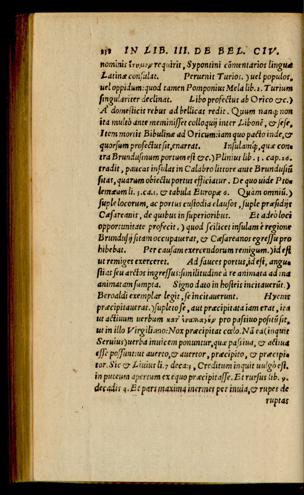 238 IN LIB. III. DE BEL. CIV.
nominis requirit, Sypontini cōmentarios linguæ
Latinæ consulat. Peruenit Turios.) uel populos,
uel oppidum: quod tamen Pomponius Mela lib. 2. Turium
singulariter declinat. Libo profectus ab Orico &c.)
A domesticis rebus ad bellicas redit. Quum nanq; non
ita multo ante meminisset colloquij inter Libonē, & sese,
Item mortis Bibulinæ ad Oricum: iam quo pacto inde, &
quorsum profectus sit, enarrat. Insulamq́;, quæ con
tra Brundusinum portum est &c.) Plinius lib. 3. cap. 26.
tradit, paucas insulas in Calabro littore ante Brundusiū
sitas, quarum obiectu portus efficiatur. De quo uide Pto
lemæum li. 3. ca. 1. & tabula Europæ 6. Quàm omniū.)
suple locorum, ac portus custodia clausos, suple præsidijs
Cæsareanis, de quibus in superioribus. Et adeò loci
opportunitate profecit,) quod scilicet insulam è regione
Brundusij sitam occupauerat, & Cæsareanos egressu pro
hibebat. Per causam exercendorum remigum,) id est
ut remiges exerceret. Ad fauces portus, id est, angu-
stias seu arctos ingressus: similitudine à re animata ad ina
nimatam sumpta. Signo dato in hostis incitauerūt.)
Beroaldi exemplar legit, se incitauerunt. Hyems
præcipitauerat.) suple se, aut præcipitata iam erat, ita
ut actiuum uerbum pro passiuo positū sit,
ut in illo Virgiliano: Nox præcipitat cælo. Nā ea (inquit
Seruius) uerba inuicem ponuntur, quæ passiua, & actiua
esse possunt: ut auerto, & auertor, præcipito, & præcipi
tor. Sic & Liuius li. 5. Creditum inquit uulgò est,
in puteum apertum ex equo præcipitasse. Et rursus lib. 9.
decadis 4. Et pars maxima inermes per inuia, & rupes de
ruptas